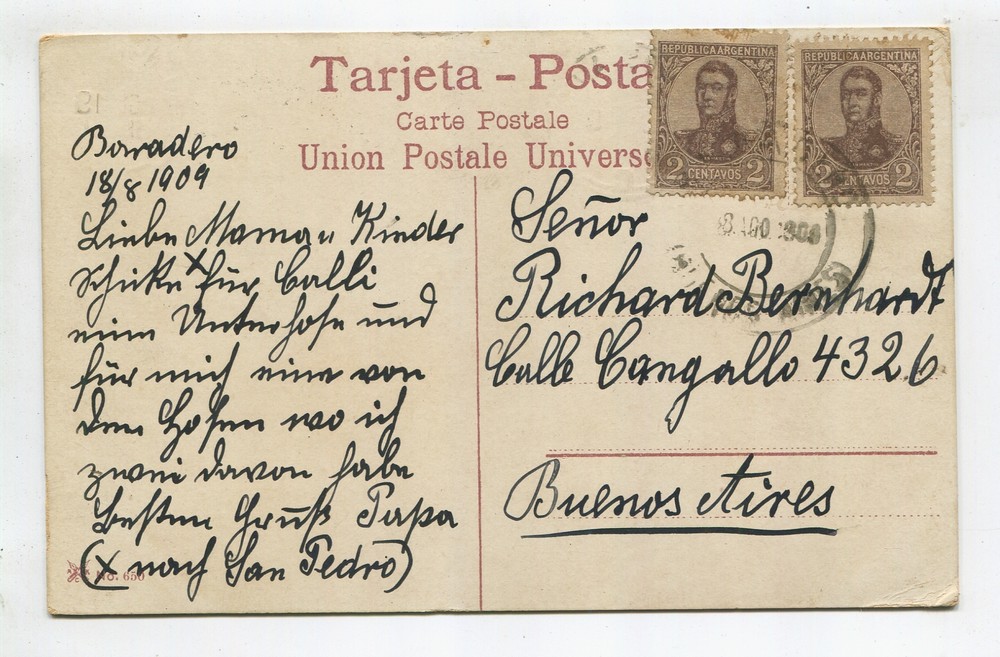 Tarjeta - Posta
Carte Postale
Union Postale Universe
REPUBLICA ARGENTINA
2 CENTAVOS 2
REPUBLICA ARGENTINA
2 CENTAVOS 2
AGO 190
Baradero
18/8 1909
Liebe Mama u Kinder
Schicke x für Calli
eine Unterhose und
für mich eine von
den Hosen wo ich
zwei davon habe
besten Gruß Papa
(x nach San Pedro)
No. 650
Señor
Richard Bernhardt
Calle Cangallo 4326
Buenos Aires